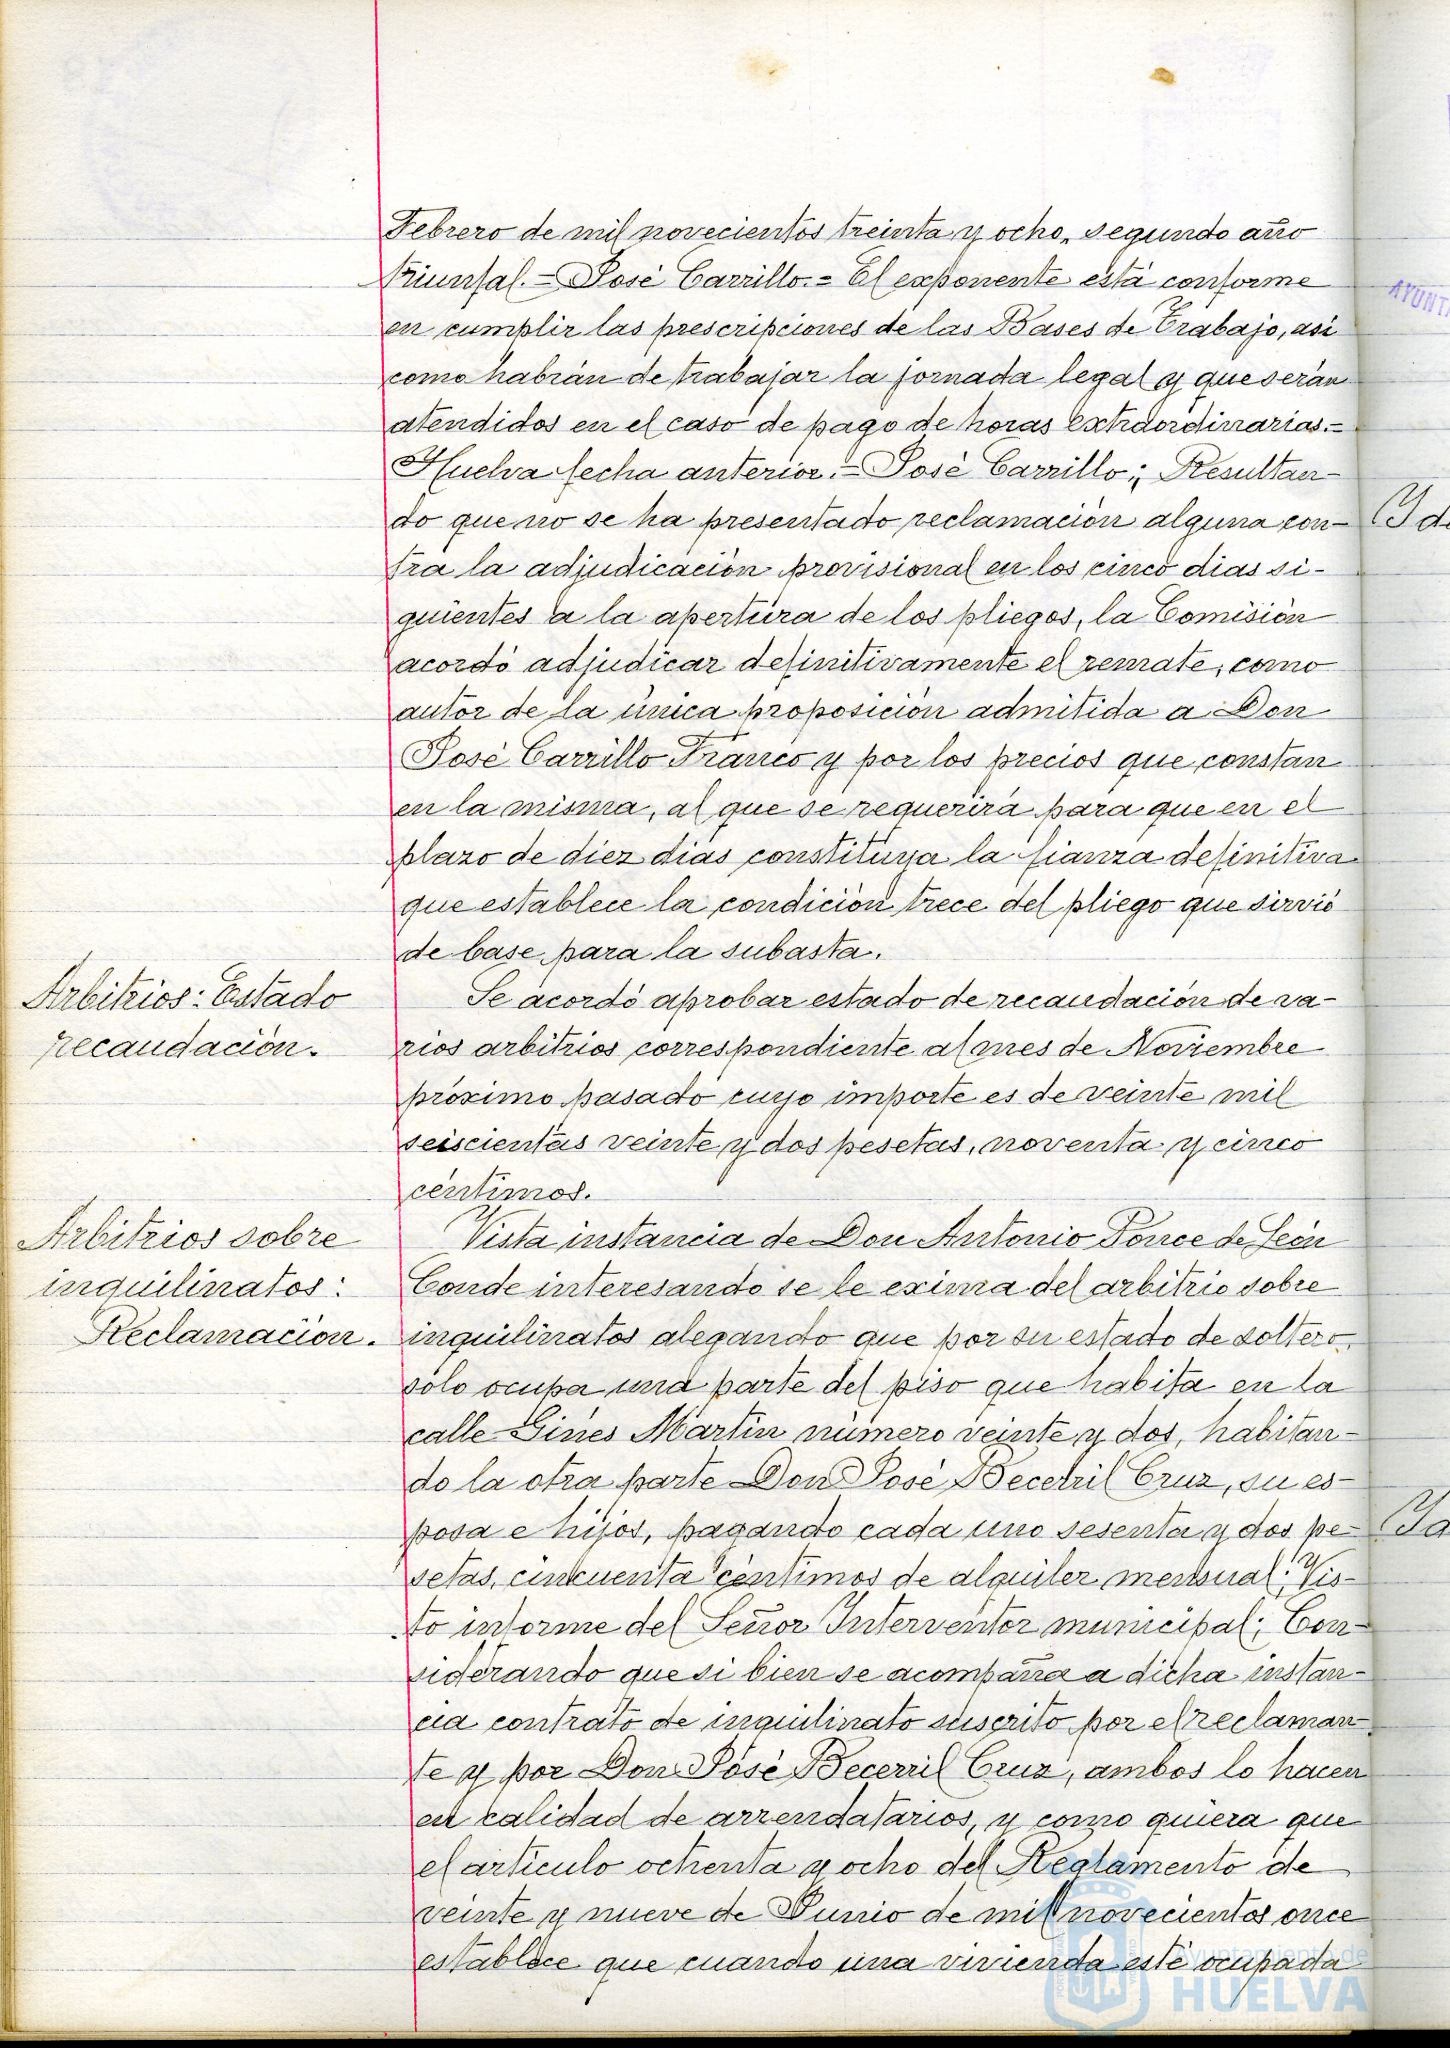 Febrero de mil novecientos treinta y ocho, segundo año
triunfal.= José Carrillo.= El exponente está conforme
en cumplir las prescripciones de las Bases de Trabajo, así
como habrán de trabajar la jornada legal y que serán
atendidos en el caso de pago de horas extraordinarias.=
Huelva fecha anterior.= José Carrillo"; Resultan-
do que no se ha presentado reclamación alguna con-
tra la adjudicación provisional en los cinco dias si-
guientes a la apertura de los pliegos, la Comisión
acordó adjudicar definitivamente el remate, como
autor de la única proposición admitida a Don
José Carrillo Franco y por los precios que constan
en la misma, al que se requerirá para que en el
plazo de diez dias constituya la fianza definitiva
que establece la condición trece del pliego que sirvió
de base para la subasta.
Arbitrios: Estado
recaudación.
Se acordó aprobar estado de recaudación de va-
rios arbitrios correspondiente al mes de Noviembre
próximo pasado cuyo importe es de veinte mil
seiscientas veinte y dos pesetas, noventa y cinco
céntimos.
Arbitrios sobre
inquilinatos:
Reclamación.
Vista instancia de Don Antonio Ponce de León
Conde interesando se le exima del arbitrio sobre
inquilinatos alegando que por su estado de soltero,
sólo ocupa una parte del piso que habita en la
calle Ginés Martín número veinte y dos, habitan-
do la otra parte Don José Becerril Cruz, su es-
posa e hijos, pagando cada uno sesenta y dos pe-
setas, cincuenta céntimos de alquiler mensual; Vis-
to informe del Señor Interventor municipal; Con-
siderando que si bien se acompaña a dicha instan-
cia contrato de inquilinato suscrito por el reclaman-
te y por Don José Becerril Cruz, ambos lo hacen
en calidad de arrendatarios, y como quiera que
el artículo ochenta y ocho del Reglamento de
veinte y nueve de Junio de mil novecientos once
establece que cuando una vivienda esté ocupada
Ayuntamiento de
HUELVA